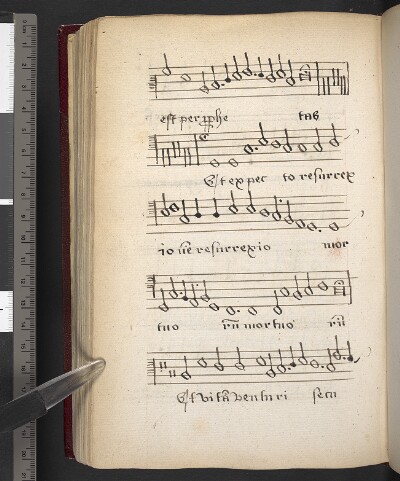 est per pphe tas
Et expec to resurrex
io ne resurrexio mor
tuo rũ mortuo rũ
Et vitã venturi secu